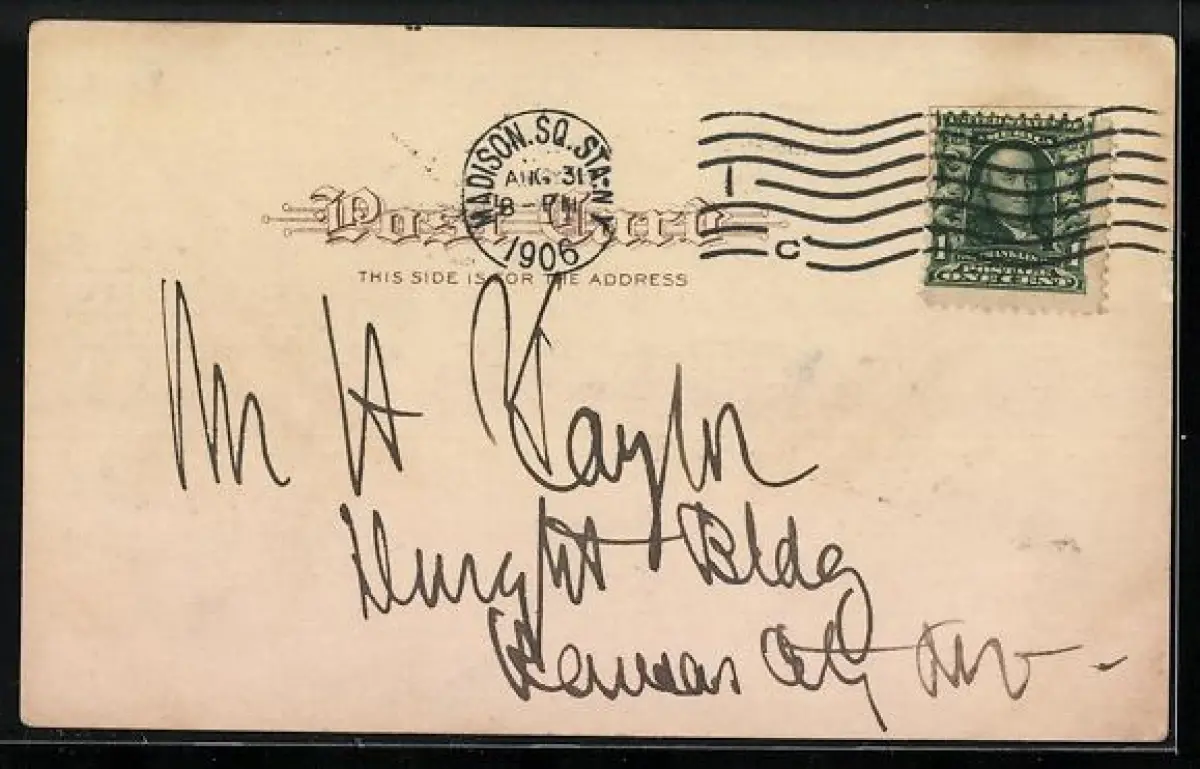 MADISON. SQ. STA. N.Y.
AUG 31
8-PM
1906
1
C
AMERICA
1 1
ONE CENT
Post Card
THIS SIDE IS FOR THE ADDRESS
Mr H Taylor
Dwight Bldg
Kansas City Mo